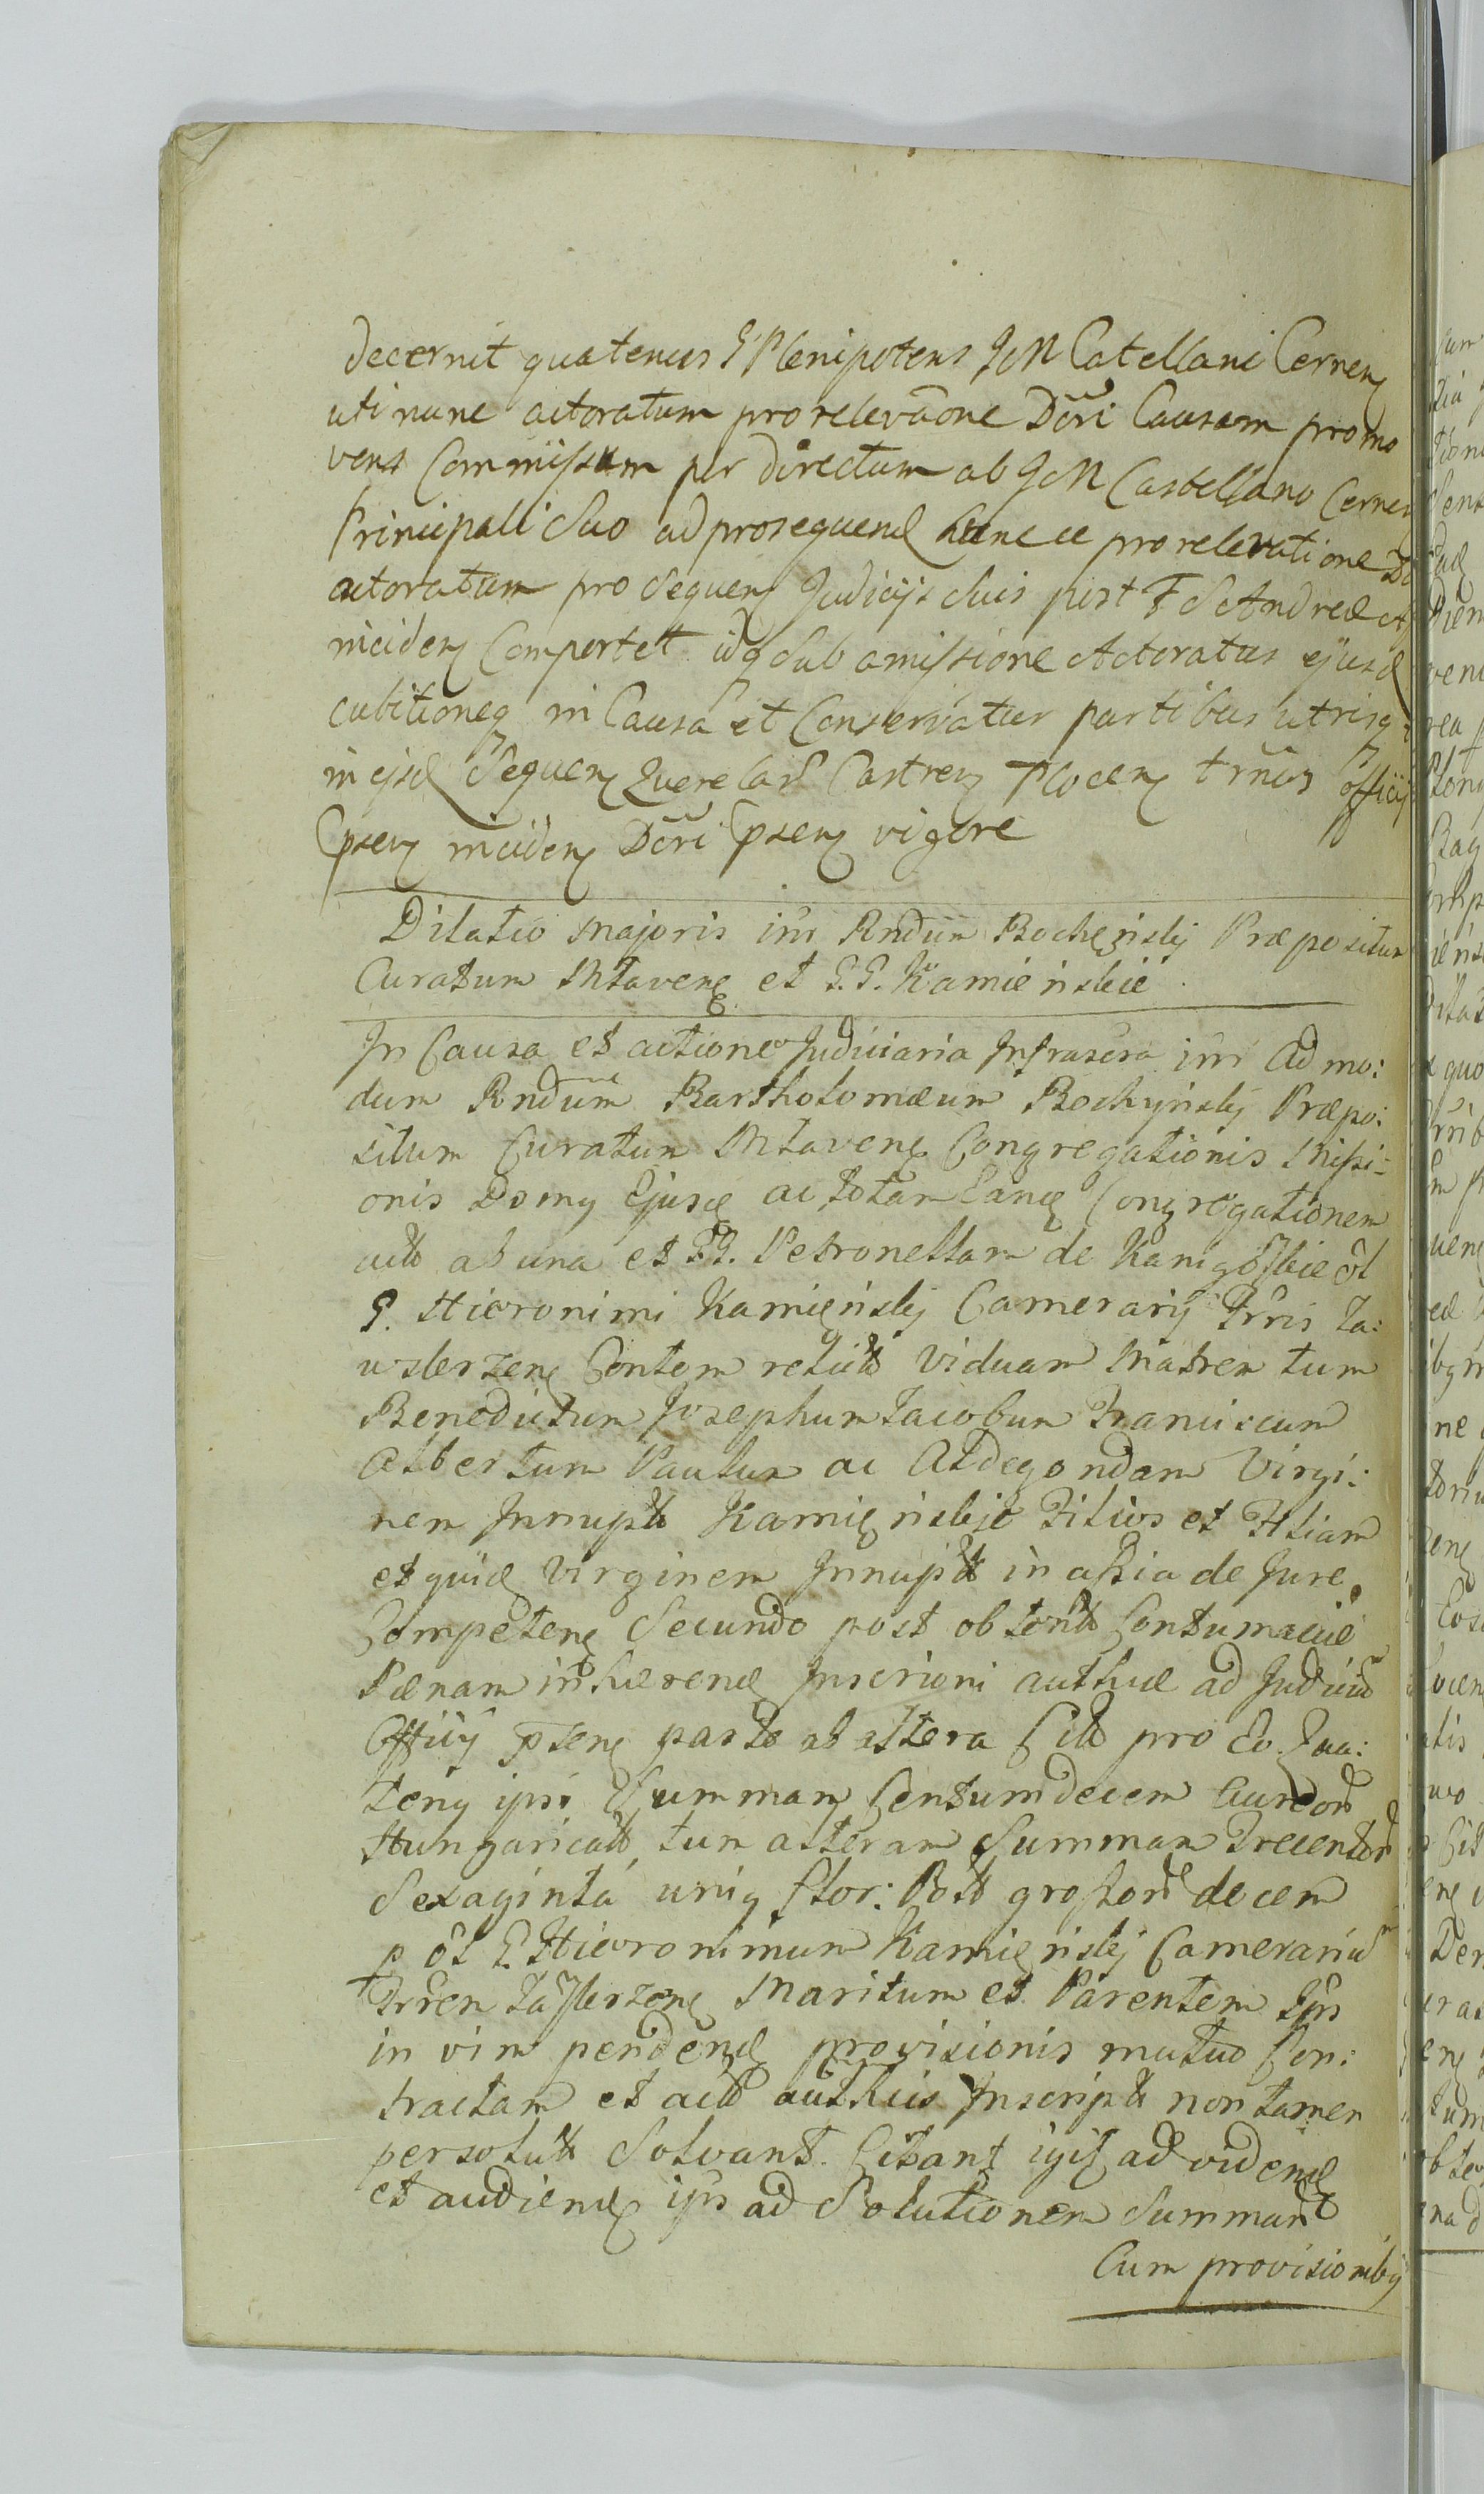 decernit quatenus G Plenipotens JcM Catellani Cernen
uti nunc actoratum pro relevaone Dcri Causam promo
vens Commissum per directum ab JcM Castellano Cernen
Principali Suo ad prosequend hunce pro relevatione
actoratum pro Sequen Judicijs Suis post F S Andreæ
inciden Comportet idq Sub amissione Actoratus ejusd
cubitioneq in Causa et Conservatur partibus utrisq
in ejsd Sequen Querelar Castren Plocen trnus officij
Cpsen inciden Dcri Cpsen vigore
Dilatio Majoris inr Rndum Bochęński Præpositum
Curatum Mlaven et G.G. Kamieńskie
In Causa et actione Judiciaria Infrascra inr Admo:
dum Rndum Bartholomæum Bochyński Præpo:
situm Curatum Mlaven Congregationis Missi-
onis Domq Ejusd ac totam Eand Congregationem
actt ab una et GG. Petronellam de Kanigoskie ol
G. Hieronimi Kamięński Camerarij Trris Za:
wskrzen Contem relictt viduam Matrem tum
Benedictum Josephum Jacobum Franciscum
Albertum Paulum ac Aldegondam Virgi:
nem Innuptt Kamięńskje Filios et Filiam
et quid virginem Innuptt in assia de Jure
Competen Secundo post obtentt Contumaciæ
Pænam inhærend Inscrioni authcæ ad Judiciu
Officij psen parte ab altera Citt pro Eo Qua:
tenq ipsi Summam Centum decem Aureor
Hungaricatt, tum alteram Summam Trecentor
Sexaginta uniq flor: Poltt grossor decem
p ol G. Hieronimum Kamięński Camerariu
Trren Zaskrzen Maritum et Parentem Ipsr
in vim pendend provisionis mutuo Con:
tractam et actt authcis Inscriptt non tamen
persolutt Solvant. Citant igit ad vidend
et audiend ips ad Solutionem Summar
Cum provisionibq